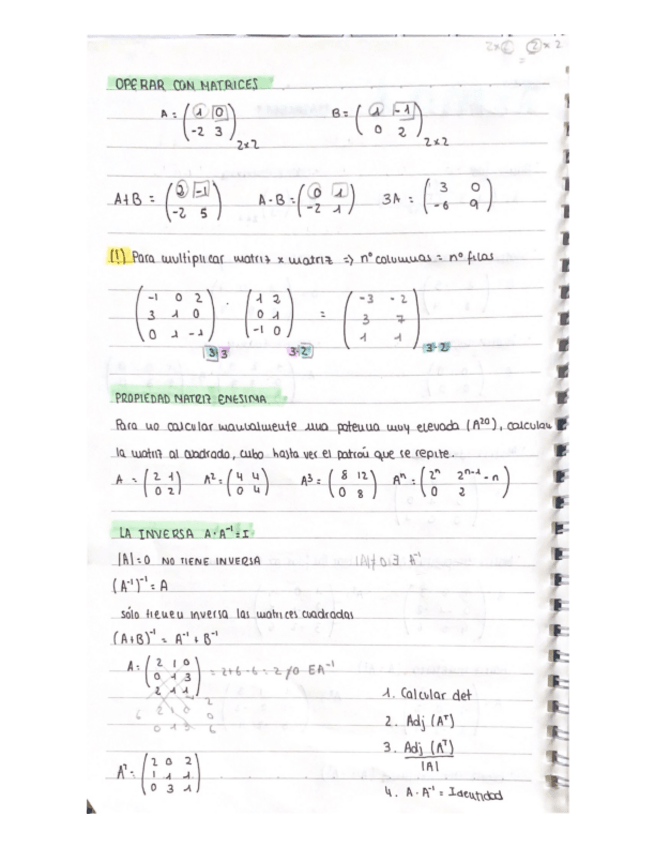 2x2 2x2
=
OPERAR CON MATRICES
A = ( 1 0 ) B = ( 1 -1 )
( -2 3 ) 2x2 ( 0 2 ) 2x2
A+B = ( 2 -1 ) A-B = ( 0 1 ) 3A = ( 3 0 )
( -2 5 ) ( -2 1 ) ( -6 9 )
(!) Para multiplicar matriz x matriz => nº columnas = nº filas
( -1 0 2 ) . ( 1 2 ) = ( -3 -2 )
( 3 1 0 ) ( 0 1 ) ( 3 7 )
( 0 1 -1 ) ( -1 0 ) ( 1 1 )
3·3 3·2 3·2
PROPIEDAD MATRIZ ENESIMA
Para no calcular manualmente una potencia muy elevada (A²⁰), calculan
la matriz al cuadrado, cubo hasta ver el patrón que se repite.
A = ( 2 1 ) A² = ( 4 4 ) A³ = ( 8 12 ) Aⁿ = ( 2ⁿ 2ⁿ⁻¹·n )
( 0 2 ) ( 0 4 ) ( 0 8 ) ( 0 2 )
LA INVERSA A·A⁻¹=I
|A|=0 NO TIENE INVERSA |A|≠0 ∃ A⁻¹
(A⁻¹)⁻¹ = A
sólo tienen inversa las matrices cuadradas
(A+B)⁻¹ = A⁻¹ + B⁻¹
A = ( 2 1 0 ) = 2+6-6 = 2 ≠0 ∃A⁻¹
( 0 1 3 )
( 2 1 1 )
2
6 2 1 0 0
0 1 3 6
1. Calcular det
2. Adj (Aᵀ)
3. Adj (Aᵀ)
|A|
Aᵀ = ( 2 0 2 )
( 1 1 1 )
( 0 3 1 )
4. A·A⁻¹ = Identidad